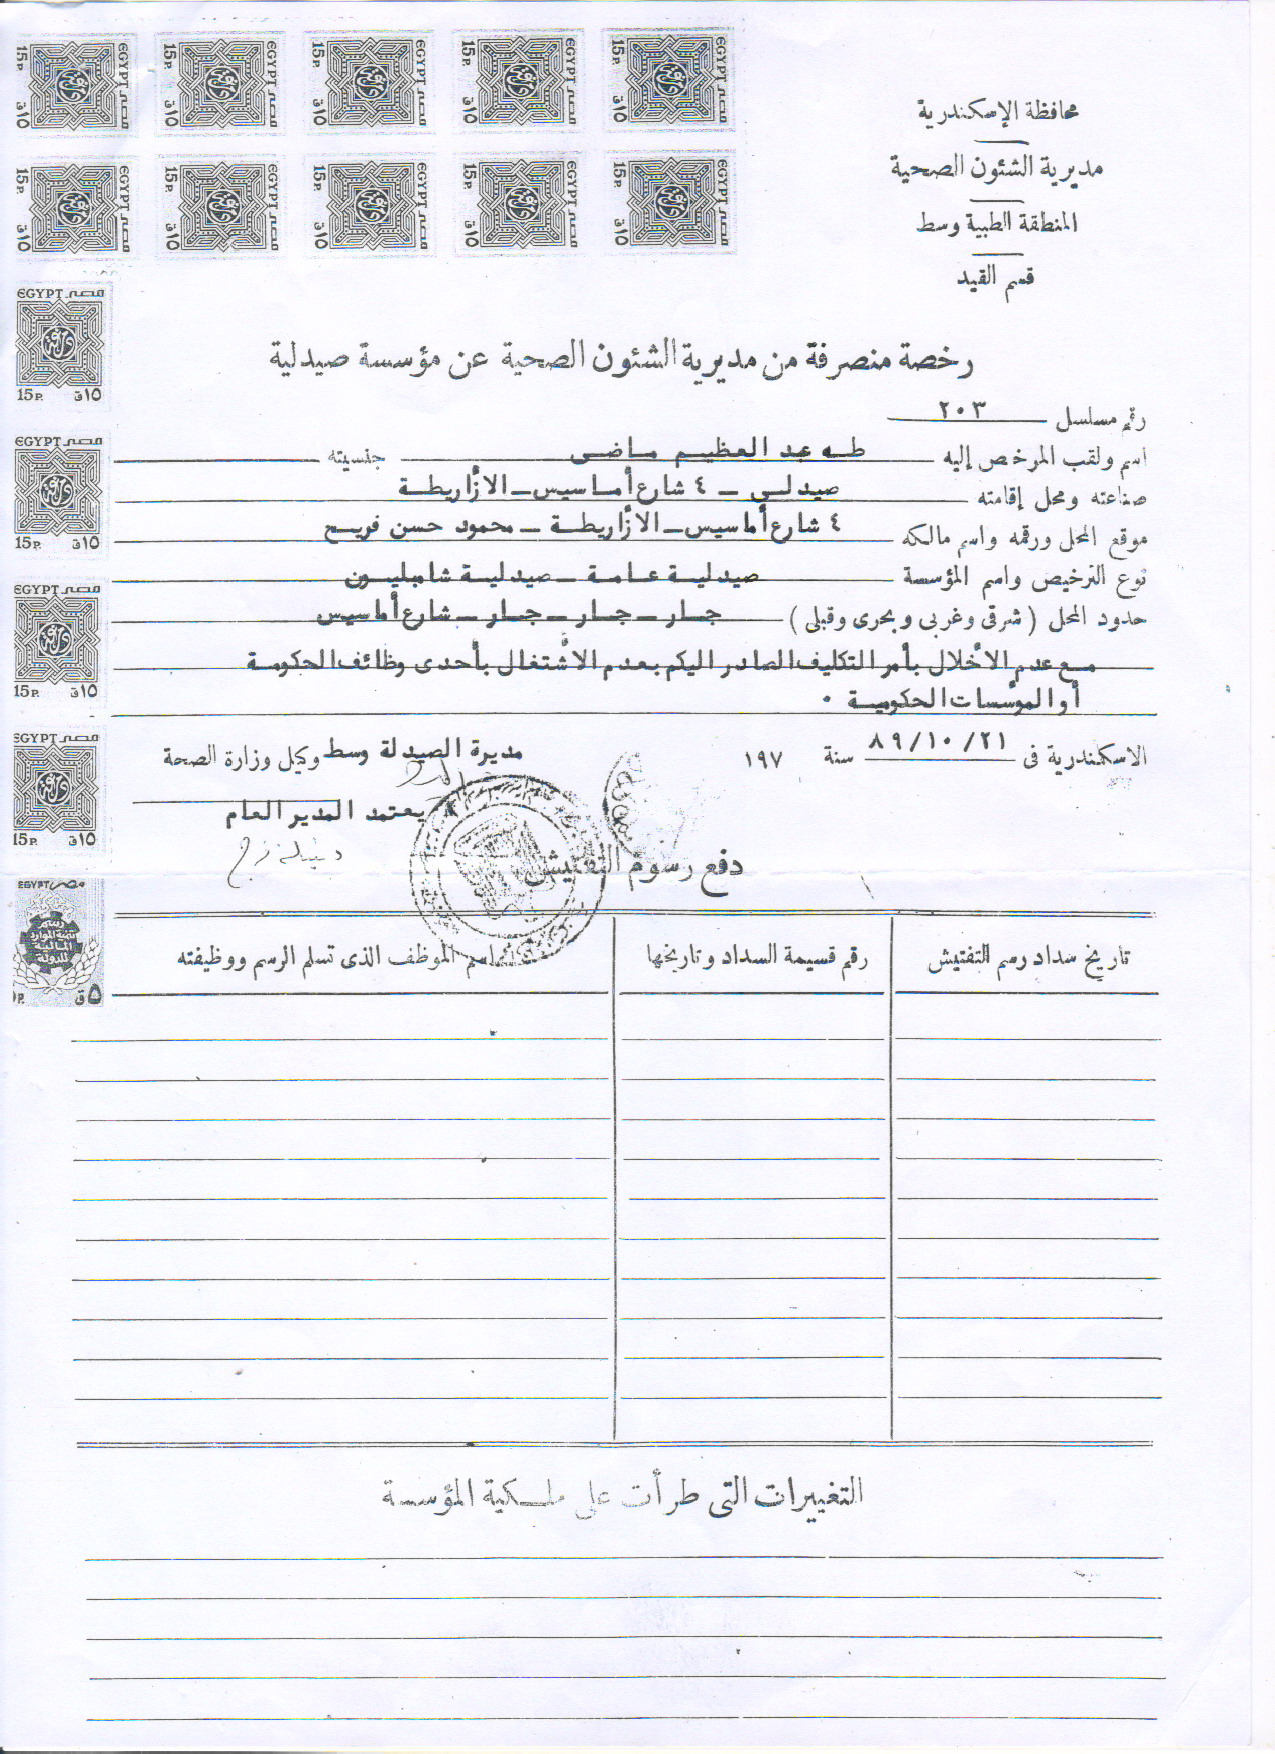 EGYPT مصر
15 P. ١٥ ق
EGYPT مصر
15 P. ١٥ ق
EGYPT مصر
15 P. ١٥ ق
EGYPT مصر
15 P. ١٥ ق
EGYPT مصر
15 P. ١٥ ق
EGYPT مصر
15 P. ١٥ ق
EGYPT مصر
15 P. ١٥ ق
EGYPT مصر
15 P. ١٥ ق
EGYPT مصر
15 P. ١٥ ق
EGYPT مصر
15 P. ١٥ ق
محافظة الإسكندرية
مديرية الشئون الصحية
المنطقة الطبية وسط
قسم القيد
EGYPT مصر
15 P. ١٥ ق
EGYPT مصر
15 P. ١٥ ق
EGYPT مصر
15 P. ١٥ ق
EGYPT مصر
15 P. ١٥ ق
EGYPT مصر
رسم
تنمية الموارد
المالية
للدولة
P. ٥ ق
رخصة منصرفة من مديرية الشئون الصحية عن مؤسسة صيدلية
رقم مسلسل ٢٠٣
اسم ولقب المرخص إليه طه عبد العظيم ماضى جنسيته
صناعته ومحل إقامته صيدلى - ٤ شارع أماسيس - الازاريطة
موقع المحل ورقمه واسم مالكه ٤ شارع أماسيس - الازاريطة - محمود حسن فريح
نوع الترخيص واسم المؤسسة صيدلية عامة - صيدلية شامبليون
حدود المحل ( شرقى وغربى وبحرى وقبلى ) جار - جار - جار - شارع أماسيس
مع عدم الاخلال بأمر التكليف الصادر اليكم بعدم الاشتغال بأحدى وظائف الحكومة
أو المؤسسات الحكومية ٠
الاسكندرية فى ٢١/ ١٠/ ٨٩ سنة ١٩٧
مديرة الصيدلة وسط وكيل وزارة الصحة
يعتمد المدير العام
دفع رسوم التفتيش
تاريخ سداد رسم التفتيش رقم قسيمة السداد وتاريخها اسم الموظف الذى تسلم الرسم ووظيفته
التغييرات التى طرأت على ملكية المؤسسة